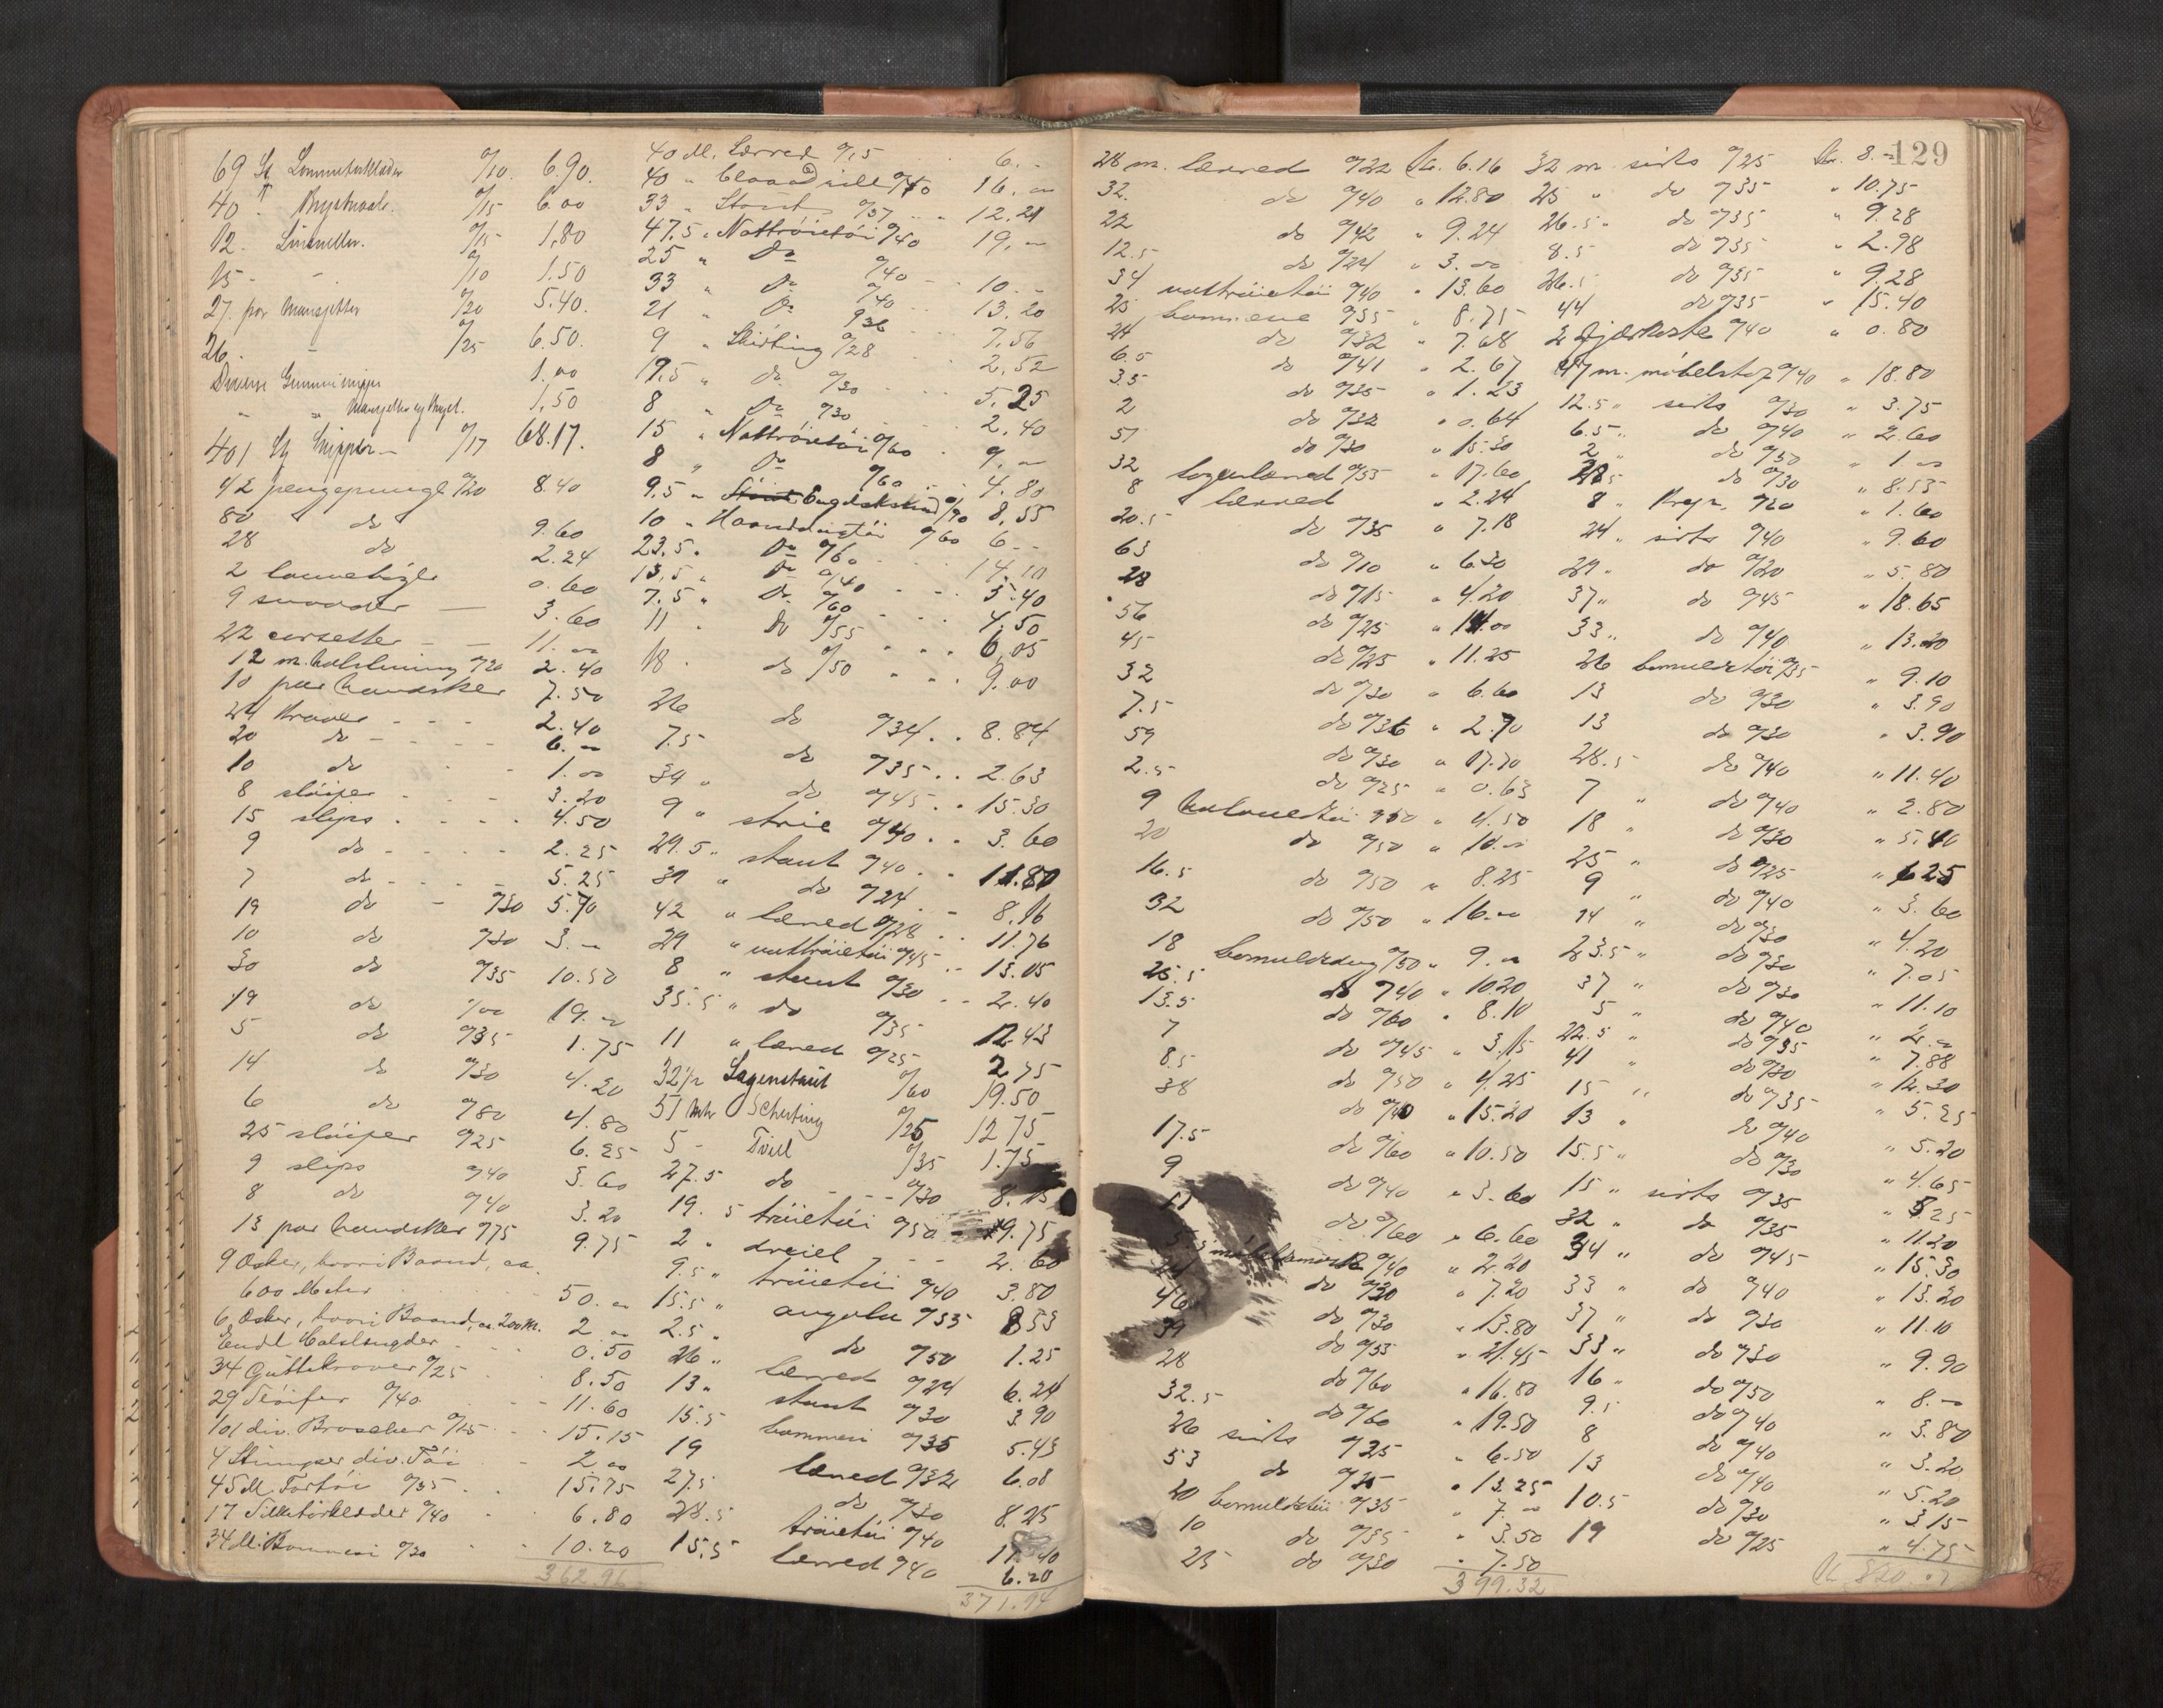 69 St Lommetørklæder a/10. 6.90.
40 " Brystnaale. a/15 6.00
12. Linneller. a/15 1,80
15 - - a/10 1.50
27. par Mansjetter a/20 5.40.
26. - a/25 6.50.
Diverse Gummisnipper 1.00
" " Mansjetter og Bryst. 1,50
401 St Snipper - a/17 68.17.
42 pengepunge a/20 8.40
80 do 9.60
28 do 2.24
2 lommebøger 0.60
9 - 3.60
22 corsetter - - 11.00
12 m. a/20 2.40
10 par handsker 7.50
24 Kraver - - - 2.40
20 do - - - - 6.00
10 do - - 1.00
8 sløifer - - - 3.20
15 slips . . . . 4.50
9 do - - - - 2.25
7 do - - - 5.25
19 do - a/30 5.70
10 do a/30 3.-
30 do a/35 10.50
19 do 1/00 19.-
5 do a/35 1.75
14 do a/30 4.20
6 do a/80 4.80
25 sløifer a/25 6.25
9 slips a/40 3.60
8 do a/40 3.20
13 par handsker a/75 9.75
9 Æsker, hvori Baand, ca.
600 Meter 50.00
6 Æsker, hvori Baand, ca. 200 M. 2.00
Endl 0.50
34 a/25 8.50
29 Sløifer a/40 11.60
101 div. Broscher a/15 15.15
4 Stumper div. Tøi 2.00
45 M. Fortøi a/35 15.75
17 Silketørklæder a/40 6.80
34 M. Bommesi a/30 10.20
362.96
40 M. Lærred a/15 6.-
40 " a/40 16.00
33 " Stout a/37 12.21
47.5 " Nattrøietøi a/40 19.00
25 " Do a/40 10.-
33 " Do a/40 13.20
21 " Do a/36 7.56
9 " Skirting a/28 2.52
17,5 " do a/30 5.25
8 " Do a/30 2.40
15 " Nattrøietøi a/60 9.-
8 " Do a/60 4.80
9.5 " a/90 8.55
10 " Haanddugtøi a/60 6.-
23.5 " Do a/60 14.10
13,5 " Do a/40 5.40
7.5 " Do a/60 4.50
11 " Do a/55 6,05
18 . do a/50 9.00
26 do a/34 . . 8.84
7.5 do a/35 . . 2.63
34 " do a/45 . . 15.30
9 " strie a/40 . . 3.60
29.5 " staut a/40 . . 11.80
34 " do a/24 - 8.16
42 " lærred a/28 . . 11.76
29 " nattrøietøi a/45 . . 13.05
8 " staut a/30 - - 2.40
35.5 " do a/35 12.43
11 " lærred a/25 2.75
32 1/2 Lagenstaut a/60 19.50
51 Mtr Schirting a/25 12 75
5 - Tvill a/35 1.75
27.5 do - - - a/30 8.25
19.5 trøietøi a/50 - 9.75
2 " dreiel - - 2.60
9.5 " trøietøi a/40 3.80
15.5 " angola a/55 8 53
2.5 " do a/50 1.25
26 " lærred a/24 6.24
13 " staut a/30 3.90
15.5 bommesi a/35 5.43
19 lærred a/32 6.08
27.5 do a/30 8.25
28.5 trøietøi a/40 11.40
15.5 lærred a/40 6.20
371.94
129
28 m. lærred a/22 Kr. 6.16
32. do a/40 " 12.80
22 do a/42 " 9.24
12.5 do a/24 " 3.00
34 nattrøietøi a/40 " 13.60
25 bommesie a/35 " 8.75
24 do a/32 " 7.68
6.5 do a/41 " 2.67
3.5 do a/35 " 1.23
2 do a/32 " 0.64
51 do a/30 " 15.30
32 lagenlærred a/55 " 17.60
8 lærred " 2.24
20.5 do a/35 " 7.18
63 do a/10 " 6.30
28 do a/15 " 4.20
56 do a/25 " 14.00
45 do a/25 " 11.25
32 do a/30 " 6.60
7.5 do a/36 " 2.70
59 do a/30 " 17.70
2.5 do a/25 " 0.63
9 a/50 " 4.50
20 do a/50 " 10.-
16.5 do a/50 " 8.25
32 do a/50 " 16.00
18 bomuldsdug a/50 " 9.00
25.5 do a/40 " 10.20
13.5 do a/60 " 8.10
7 do a/45 " 3.15
8.5 do a/50 " 4.25
38 do a/40 " 15.20
17.5 do a/60 " 10.50
9 do a/40 " 3.60
11 do a/60 " 6.60
5.5 a/40 " 2.20
24 do a/30 " 7.20
46 do a/30 " 13.80
39 do a/55 " 21.45
28 do a/60 " 16.80
32.5 do a/60 " 19.50
26 sirts a/25 " 6.50
53 do a/25 " 13.25
20 bomuldstøi a/35 " 7.00
10 do a/35 " 3.50
25 do a/30 " 7.50
399.32
32 m. sirts a/25 Kr. 8.-
25 " do a/35 " 10.75
26.5 " do a/35 " 9.28
8.5 do a/35 " 2.98
26.5 do a/35 " 9.28
44 do a/35 " 15.40
2 a/40 " 0.80
47 m. møbelstof a/40 " 18.80
12.5 " sirts a/30 " 3.75
6.5 " do a/40 " 2.60
2 " do a/50 " 1.00
28.5 do a/30 " 8.55
8 " Krep. a/20 " 1.60
24 " sirts a/40 " 9.60
29 " do a/20 " 5.80
37 " do a/45 " 18.65
33 " do a/40 " 13.20
26 bomuldstøi a/35 " 9.10
13 do a/30 " 3.90
13 do a/30 " 3.90
28.5 do a/40 " 11.40
7 " do a/40 " 2.80
18 " do a/30 " 5.40
25 " do a/25 " 6.25
9 " do a/40 " 3.60
14 " do a/30 " 4.20
23.5 " do a/30 " 7.05
37 " do a/30 " 11.10
5 " do a/40 " 2.00
22.5 " do a/35 " 7.88
41 " do a/30 " 12.30
15 " do a/35 " 5.25
13 " do a/40 " 5.20
15.5 " do a/30 " 4.65
15 " sirts a/35 " 5.25
32 " do a/35 " 11.20
34 " do a/45 " 15.30
33 " do a/40 " 13.20
37 " do a/30 " 11.10
33 " do a/30 " 9.90
16 " do a/50 " 8.00
9.5 do a/40 " 3.80
8 do a/40 " 3.20
13 do a/40 " 5.20
10.5 do a/30 " 3.15
19 do a/25 " 4.75
Kr. 320.07